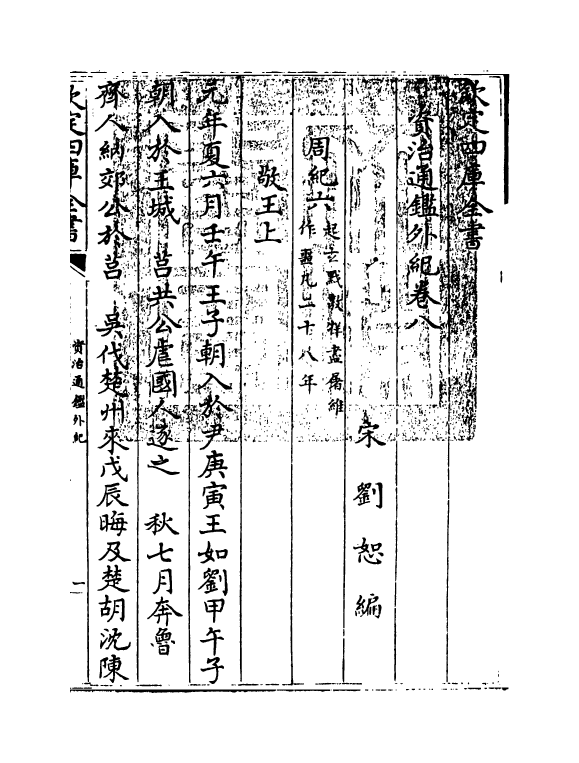 欽定四庫全書
資治通鑑外紀卷八
宋劉恕編
周紀六起玄黓敦牂盡屠維作噩凡二十八年
敬王上
元年夏六月壬午王子朝入於尹庚寅王如劉甲午子
朝入於王城 莒共公虐國人逐之 秋七月奔魯
齊人納郊公於莒 吳伐楚州來戊辰晦及楚胡沈陳
欽定四庫全書
資治通鑑外紀
一